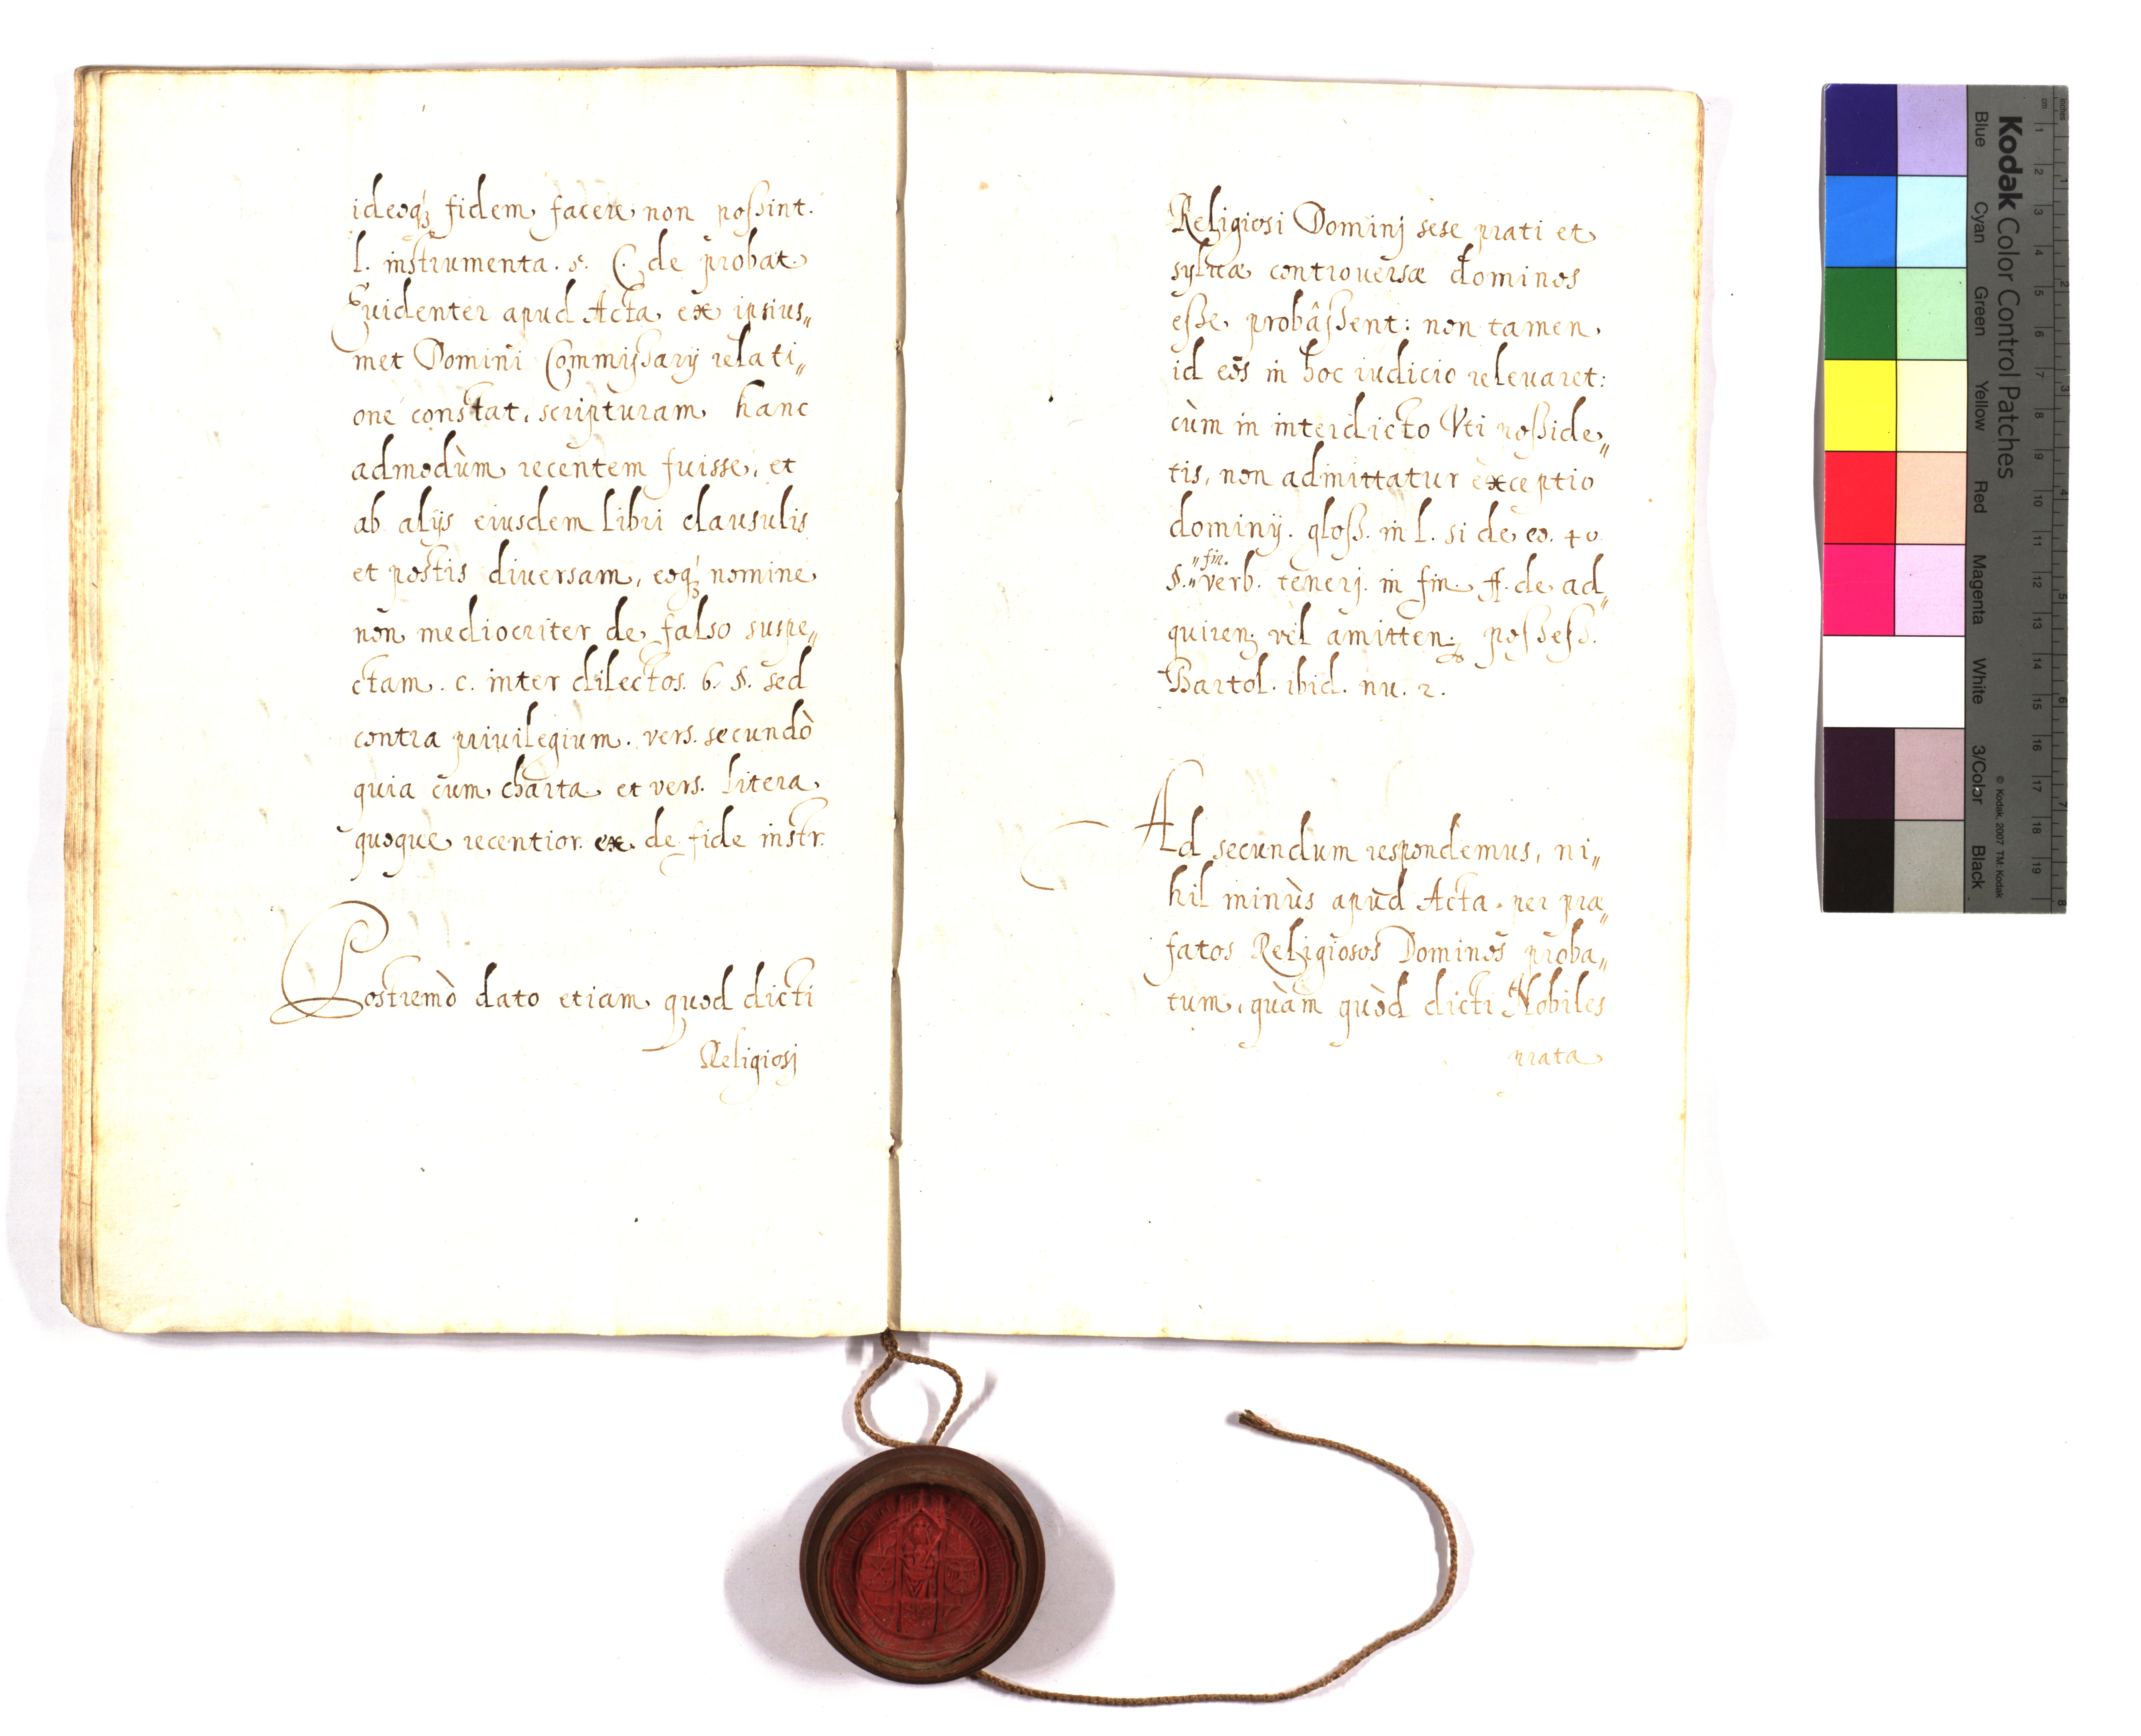 ideoq́ꝫ fidem facere non poſsint.
l. instrumenta. 5. C. de probat.
Euidenter apud Acta ex ipsius„
met Domini Commiſsarij relati„
one constat, scripturam hanc
admodùm recentem fuisse, et
ab alijs eiusdem libri clausulis
et postis diuersam, eoq́ꝫ nomine
non mediocriter de falso suspe„
ctam. c. inter dilectos. 6. §. sed
contra priuilegium. vers. secundò
quia cum charta et vers. litera
quoque recentior. ex. de fide instr.
Postremò dato etiam quod dicti
Religiosj
Religiosi Dominj sese prati et
syluæ controuersæ dominos
eſse probâſsent: non tamen
id eos in hoc iudicio releuaret:
cùm in interdicto Vti poſside„
tis, non admittatur exceptio
dominij. gloſs. in l. si de eo. 40.
§. „fin.„ verb. tenerj. in fin. ff. de ad„
quiren. vel amitten. poſseſs.
Bartol. ibid. nu. 2.
Ad secundum respondemus, ni„
hil minùs apud Acta per præ„
fatos Religiosos Dominos proba„
tum, quàm quòd dicti Nobiles
prata
Kodak Color Control Patches
Blue Cyan Green Yellow Red Magenta White 3/Color Black
© Kodak, 2007 TM: Kodak
cm 1 2 3 4 5 6 7 8 9 10 11 12 13 14 15 16 17 18 19
inches 1 2 3 4 5 6 7 8